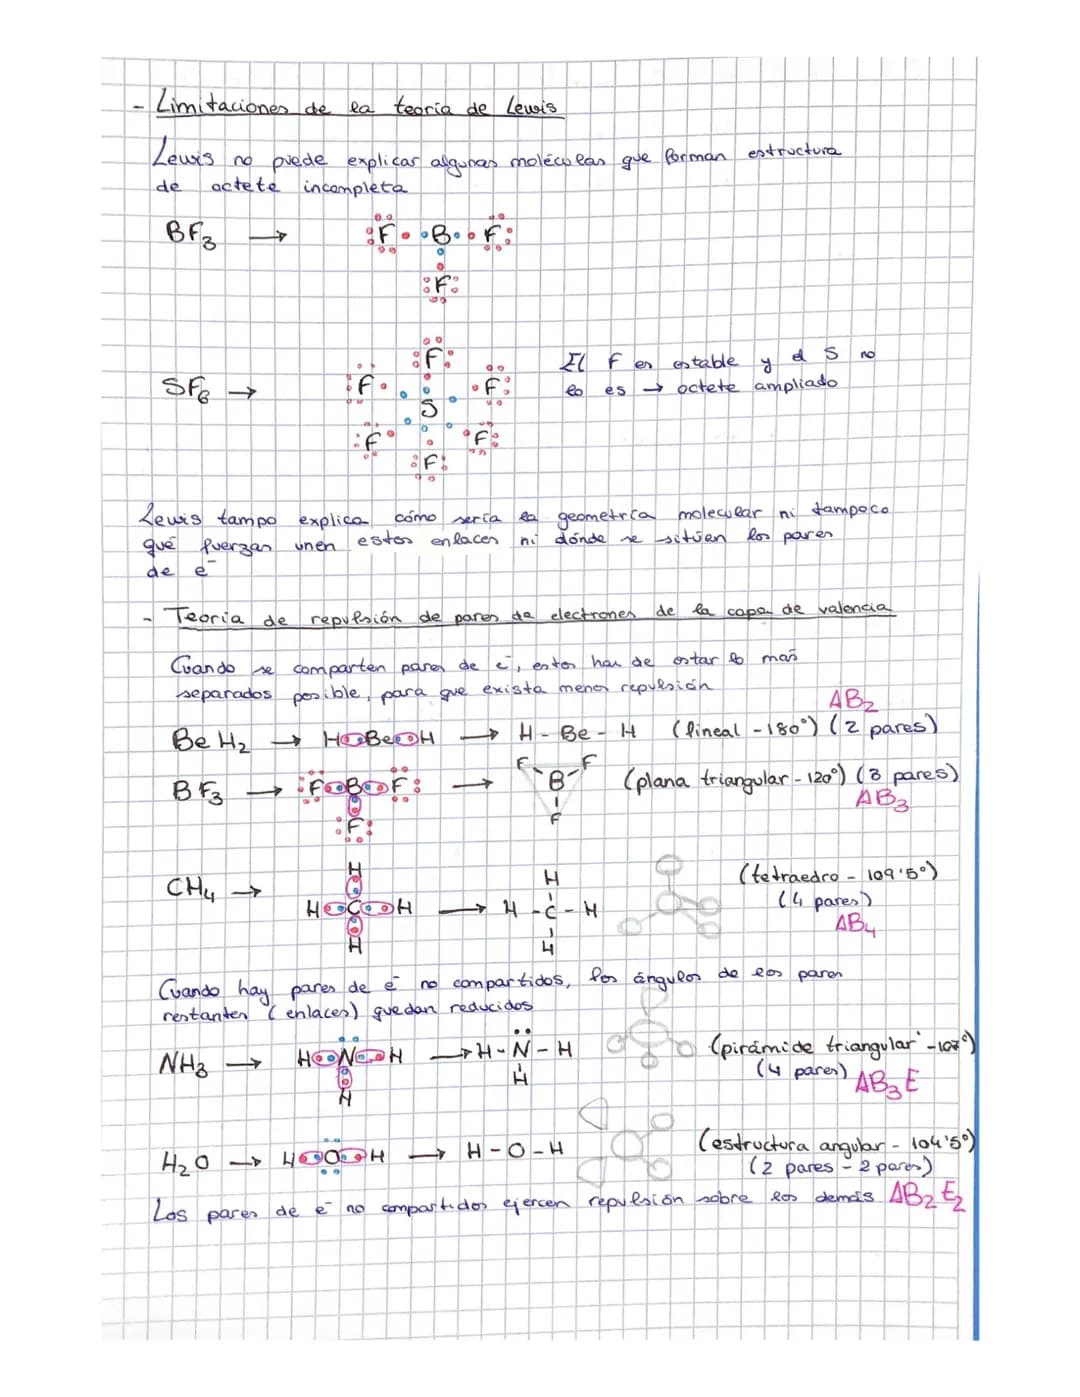 - Limitaciones de la teoría de Lewis
Lewis no puede explicar algunas moléculas que forman estructura
de octete incompleta
BF3 → F B F
F
SF6 →
F
F F
S
F F
F
El F es estable y el S no
lo es → octete ampliado
Lewis tampo explica cómo sería la geometría molecular ni tampoco
qué fuerzas unen estos enlaces ni dónde se sitúan los pares
de e⁻
- Teoría de repulsión de pares de electrones de la capa de valencia
Cuando se comparten pares de e⁻, estos han de estar lo más
separados posible, para que exista menos repulsión
AB2
BeH2 → H Be H → H - Be - H (lineal - 180°) (2 pares)
BF3 → F B F → F B F (plana triangular - 120°) (3 pares)
F F AB3
H H
CH4 → H C H → H - C - H (tetraedro - 109'5°)
H H (4 pares)
AB4
Cuando hay pares de e⁻ no compartidos, los ángulos de los pares
restantes (enlaces) quedan reducidos
NH3 → H N H → H - N - H (pirámide triangular - 107°)
H H (4 pares) AB3E
H2O → H O H → H - O - H (estructura angular - 104'5°)
(2 pares - 2 pares)
Los pares de e⁻ no compartidos ejercen repulsión sobre los demás AB2E2